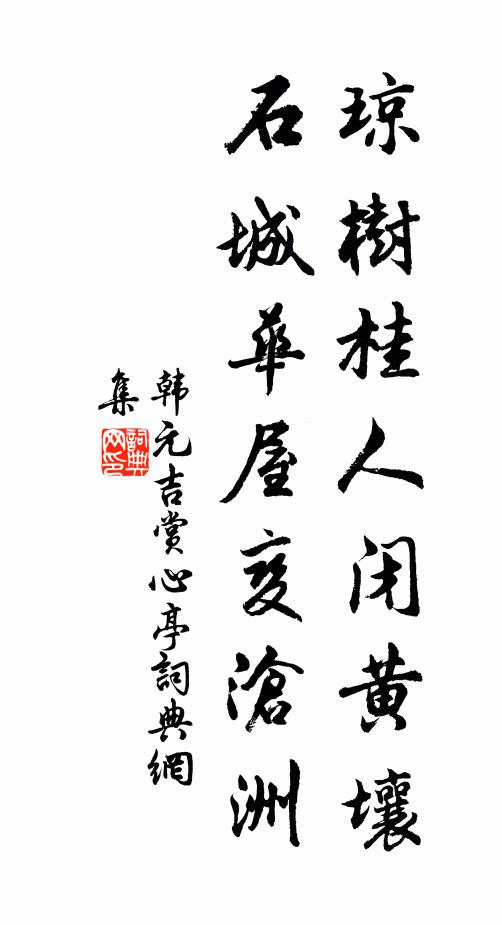 琼樹桂人闭黄壤
石城華屋变滄洲
韩元吉赏心亭詞典網
集
詞典网印